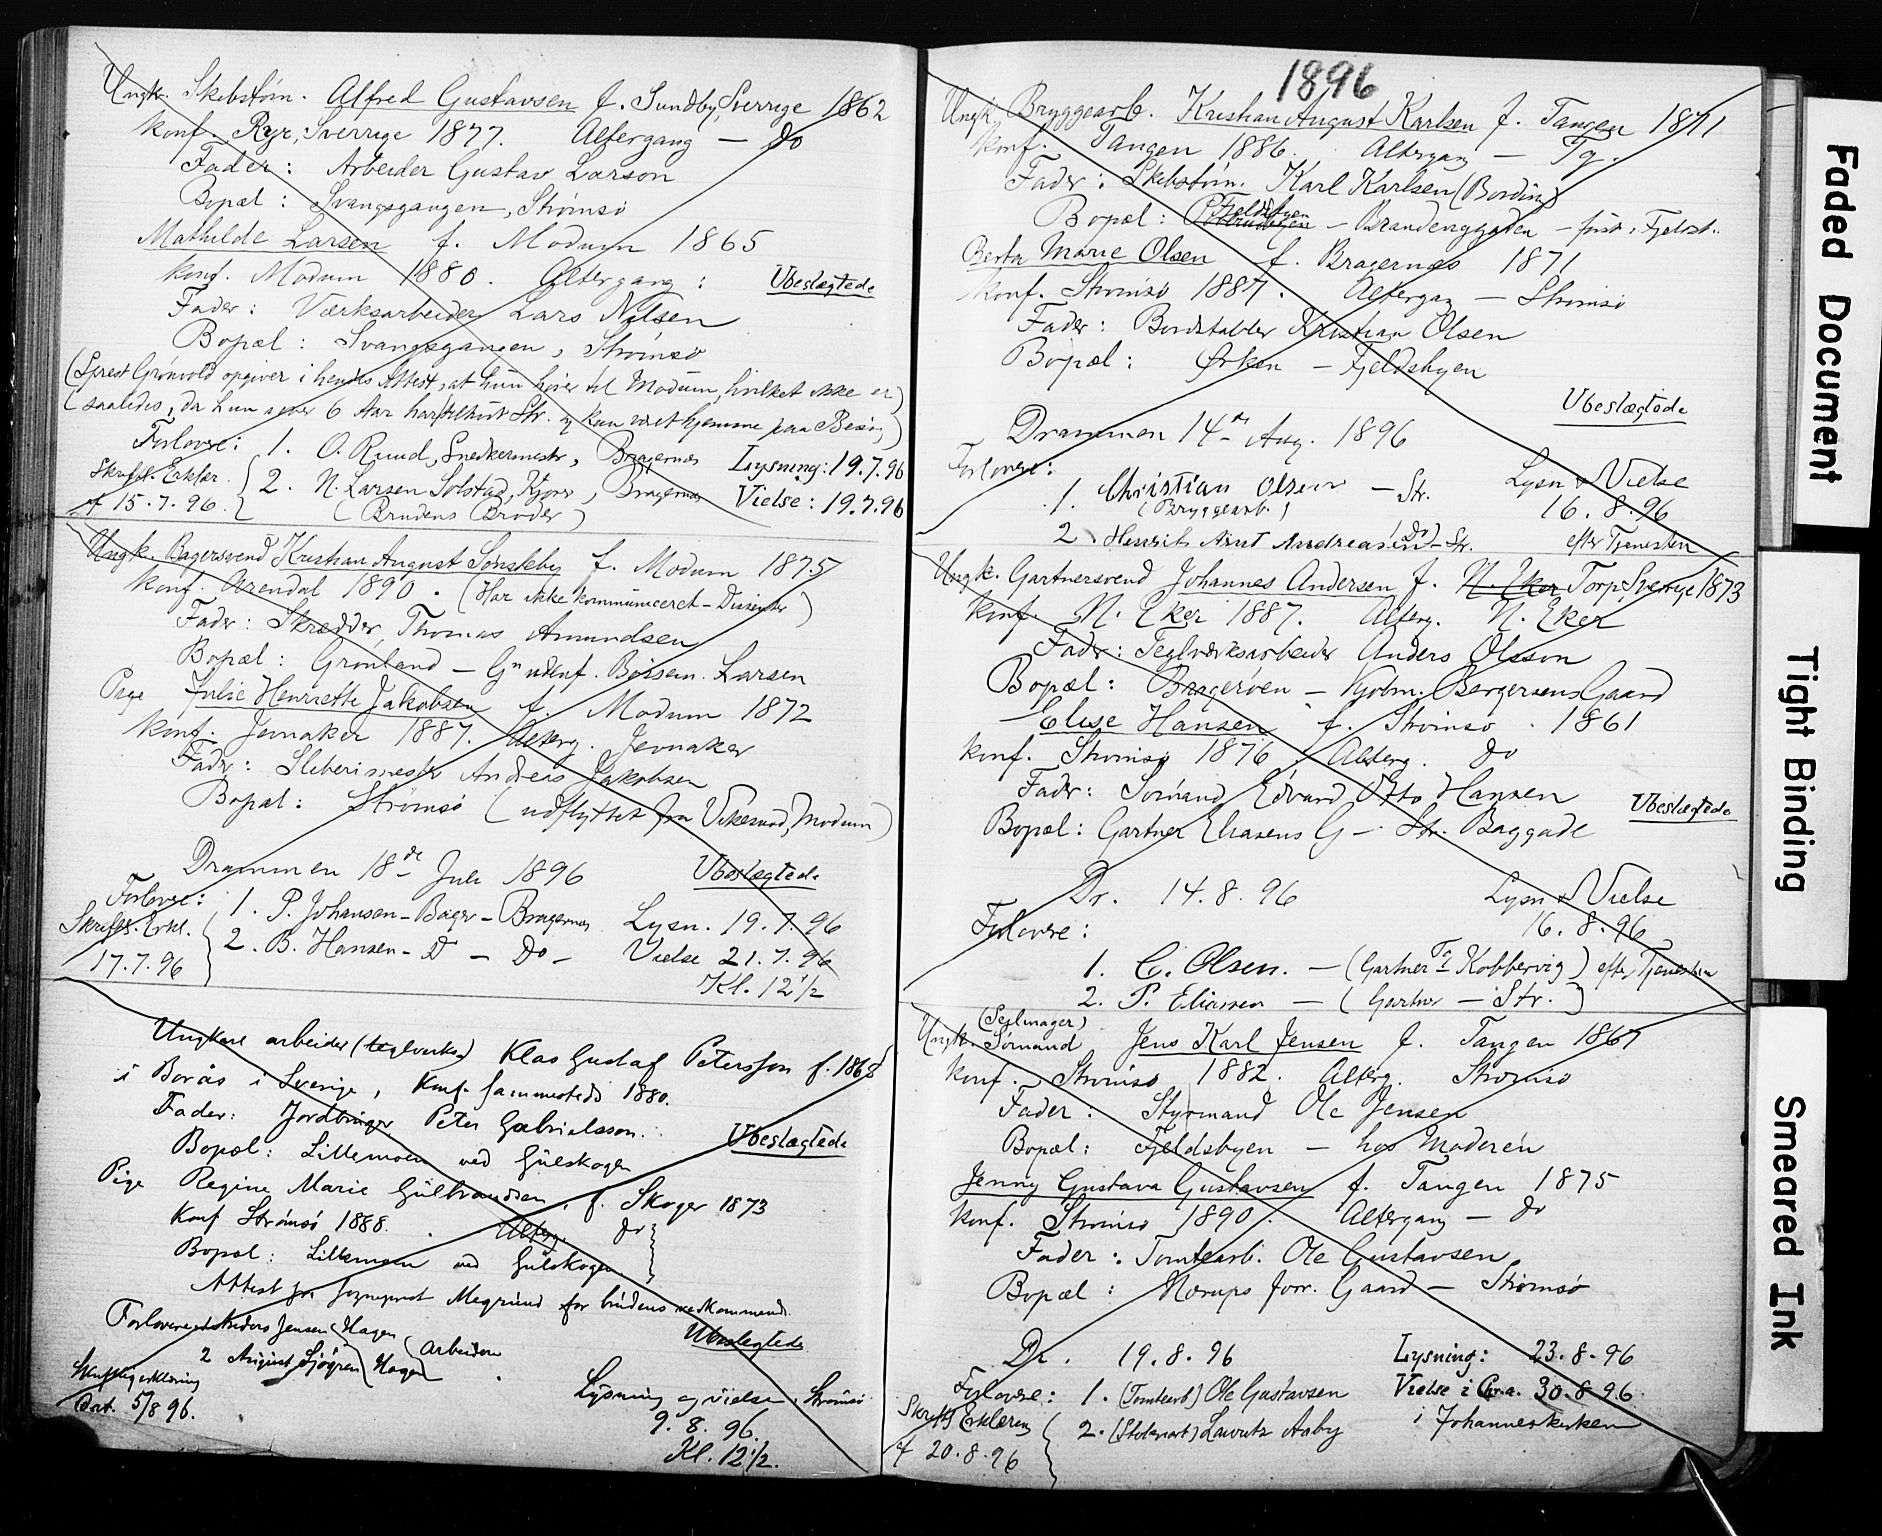 Ungk. Skibstøm. Alfred Gustavsen f. Sundby, Sverrige 1862
konf. Ryr, Sverrige 1877. Altergang — do
Fader: Arbeider Gustav Larson
Bopæl: Svangsgangen, Strømsø
Mathilde Larsen f. Modum 1865
konf. Modum 1880. Altergang:
Ubeslægtede
Fader: Værksarbeider Lars Nilsen
Bopæl: Svangsgangen, Strømsø
(Sprest Grönvold opgiver i hendes Attest, at hun hører til Modum, hvilket ikke er)
(saaledes, da hun over 6 Aar har tilhørt Str. og kun været hjemme paa Besøg)
Forlovere: 1. O. Ruud, Snedkermestr, Bragernæs Lysning: 19.7.96
Skriftl. Erklær. 2. N. Larsen Solstad, Kjører, Bragernæs Vielse: 19.7.96
af 15.7.96. (Brudens Broder)
Ungk. Bagersvend Kristian August Sønsteby f. Modum 1875
konf. Arendal 1890. (Har ikke kommuniceret – Dissenter)
Fader: Skrædder, Thomas Amundsen
Bopæl: Grønland – Gn utenf. Larsen
Pige Julie Henriette Jakobsen f. Modum 1872
konf. Jevnaker 1887. Alterg. Jevnaker
Fader: Sliberimester Anders Jakobsen
Bopæl: Strømsø (udflyttet fra Vikesund, Modum)
Drammen 18de Juli 1896
Ubeslægtede
Forlovere: 1. P. Johansen – Bager – Bragernæs Lysn. 19.7.96
Skriftl. Erkl. 2. B. Hansen – Do – Do – Vielse 21.7.96
17.7.96
Kl. 12 1/2
Ungkarl arbeider (teglverks) Klas Gustaf Petersson f. 1865
i Borås i Sverige, konf. sammesteds 1880.
Fader: Jordbruger Peter Gabrielsson.
Ubeslægtede
Bopæl: Lillemoen ved Gulskogen
Pige Regine Marie Gulbrandsen, f. Skoger 1873
Konf Strømsø 1888. Alterg. do
Bopæl: Lillemoen ved Gulskogen
Attest fra sogneprest Megrund for brudens vedkommende
Forlovere: 1 Anders Jensen Hagen
Ubeslægtede
2 August Sjögren Hagen arbeidere
Skriftlig erklæring
Dat. 5/8 96.
Lysning og vielse i Strømsø
9.8.96.
Kl. 12 1/2.
1896
Ungk. Bryggearb. Kristian August Karlsen f. Tangen 1871
konf. Tangen 1886. Altergang — Tg.
Fader: Skibstøm. Karl Karlsen (Bording)
Bopæl: Fjeldbyen – Brandenggaden –
Berta Marie Olsen f. Bragernæs 1871
konf. Strømsø 1887. Altergang — Strømsø
Fader: Bordstabler Kristian Olsen
Bopæl: Ørken – Fjeldsbyen
Ubeslægtede
Drammen 14de Aug. 1896
Forlovere:
1. Christian Olsen – Str.
(Bryggearb.)
Lysn & Vielse
16.8.96
2. Henrik Arnt Andreasen (Do) – Str.
efter Tjenesten
Ungk. Gartnersvend Johannes Andersen f. N. Eker Torp, Sverrige 1873
konf. N. Eker 1887. Alterg. N. Eker
Fader: Teglværksarbeider Anders Olsson
Bopæl: Bragerøen – Kjøbm. Bergersens Gaard
Elise Hansen f. Strømsø 1861
konf. Strømsø 1876. Alterg. do
Fader: Sømand Edvard Otto Hansen
Ubeslægtede
Bopæl: Gartner Eliasens G – Str. Baggade
Dr. 14.8.96
Lysn & Vielse
16.8.96
Forlovere:
1. C. Olsen. – (Gartner Tg Kobbervig) efter Tjenesten
2. P. Eliassen – (Gartner – Str.)
(Seilmager)
Ungk. Sømand Jens Karl Jensen f. Tangen 1867
konf. Strømsø 1882. Alterg. Strømsø
Fader: Styrmand Ole Jensen
Bopæl: Fjeldsbyen – hos Moderen
Jenny Gustava Gustavsen f. Tangen 1875
konf. Strømsø 1890. Altergang – do
Fader: Tomtearb. Ole Gustavsen
Bopæl: Nørups forr. Gaard – Strømsø
Dr. 19.8.96
Lysning: 23.8.96
Forlovere: 1. (Tomtearb) Ole Gustavsen Vielse i Chr.a. 30.8.96.
Skriftl Erklæring 2. Lauritz Aaby i Johanneskirken
af 20.8.96
Faded Document
Tight Binding
Smeared Ink